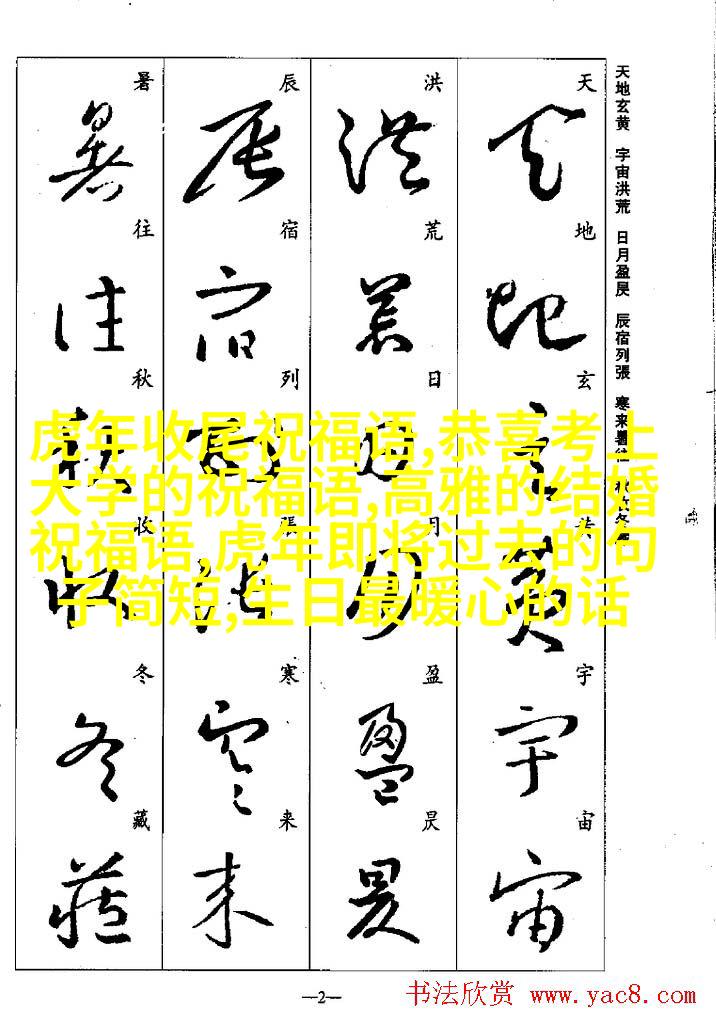 天地玄黄 宇宙洪荒 日月盈昃 辰宿列張 寒来暑往 秋收冬藏
天
地
玄
黄
宇
宙
洪
荒
日
月
盈
昃
辰
宿
列
張
寒
来
暑
往
秋
收
冬
藏
虎年收尾祝福语,恭喜考上
大学的祝福语,高雅的结婚
祝福语,虎年即将过去的句
子简短,生日最暖心的话
—2—
书法欣赏 www.yac8.com